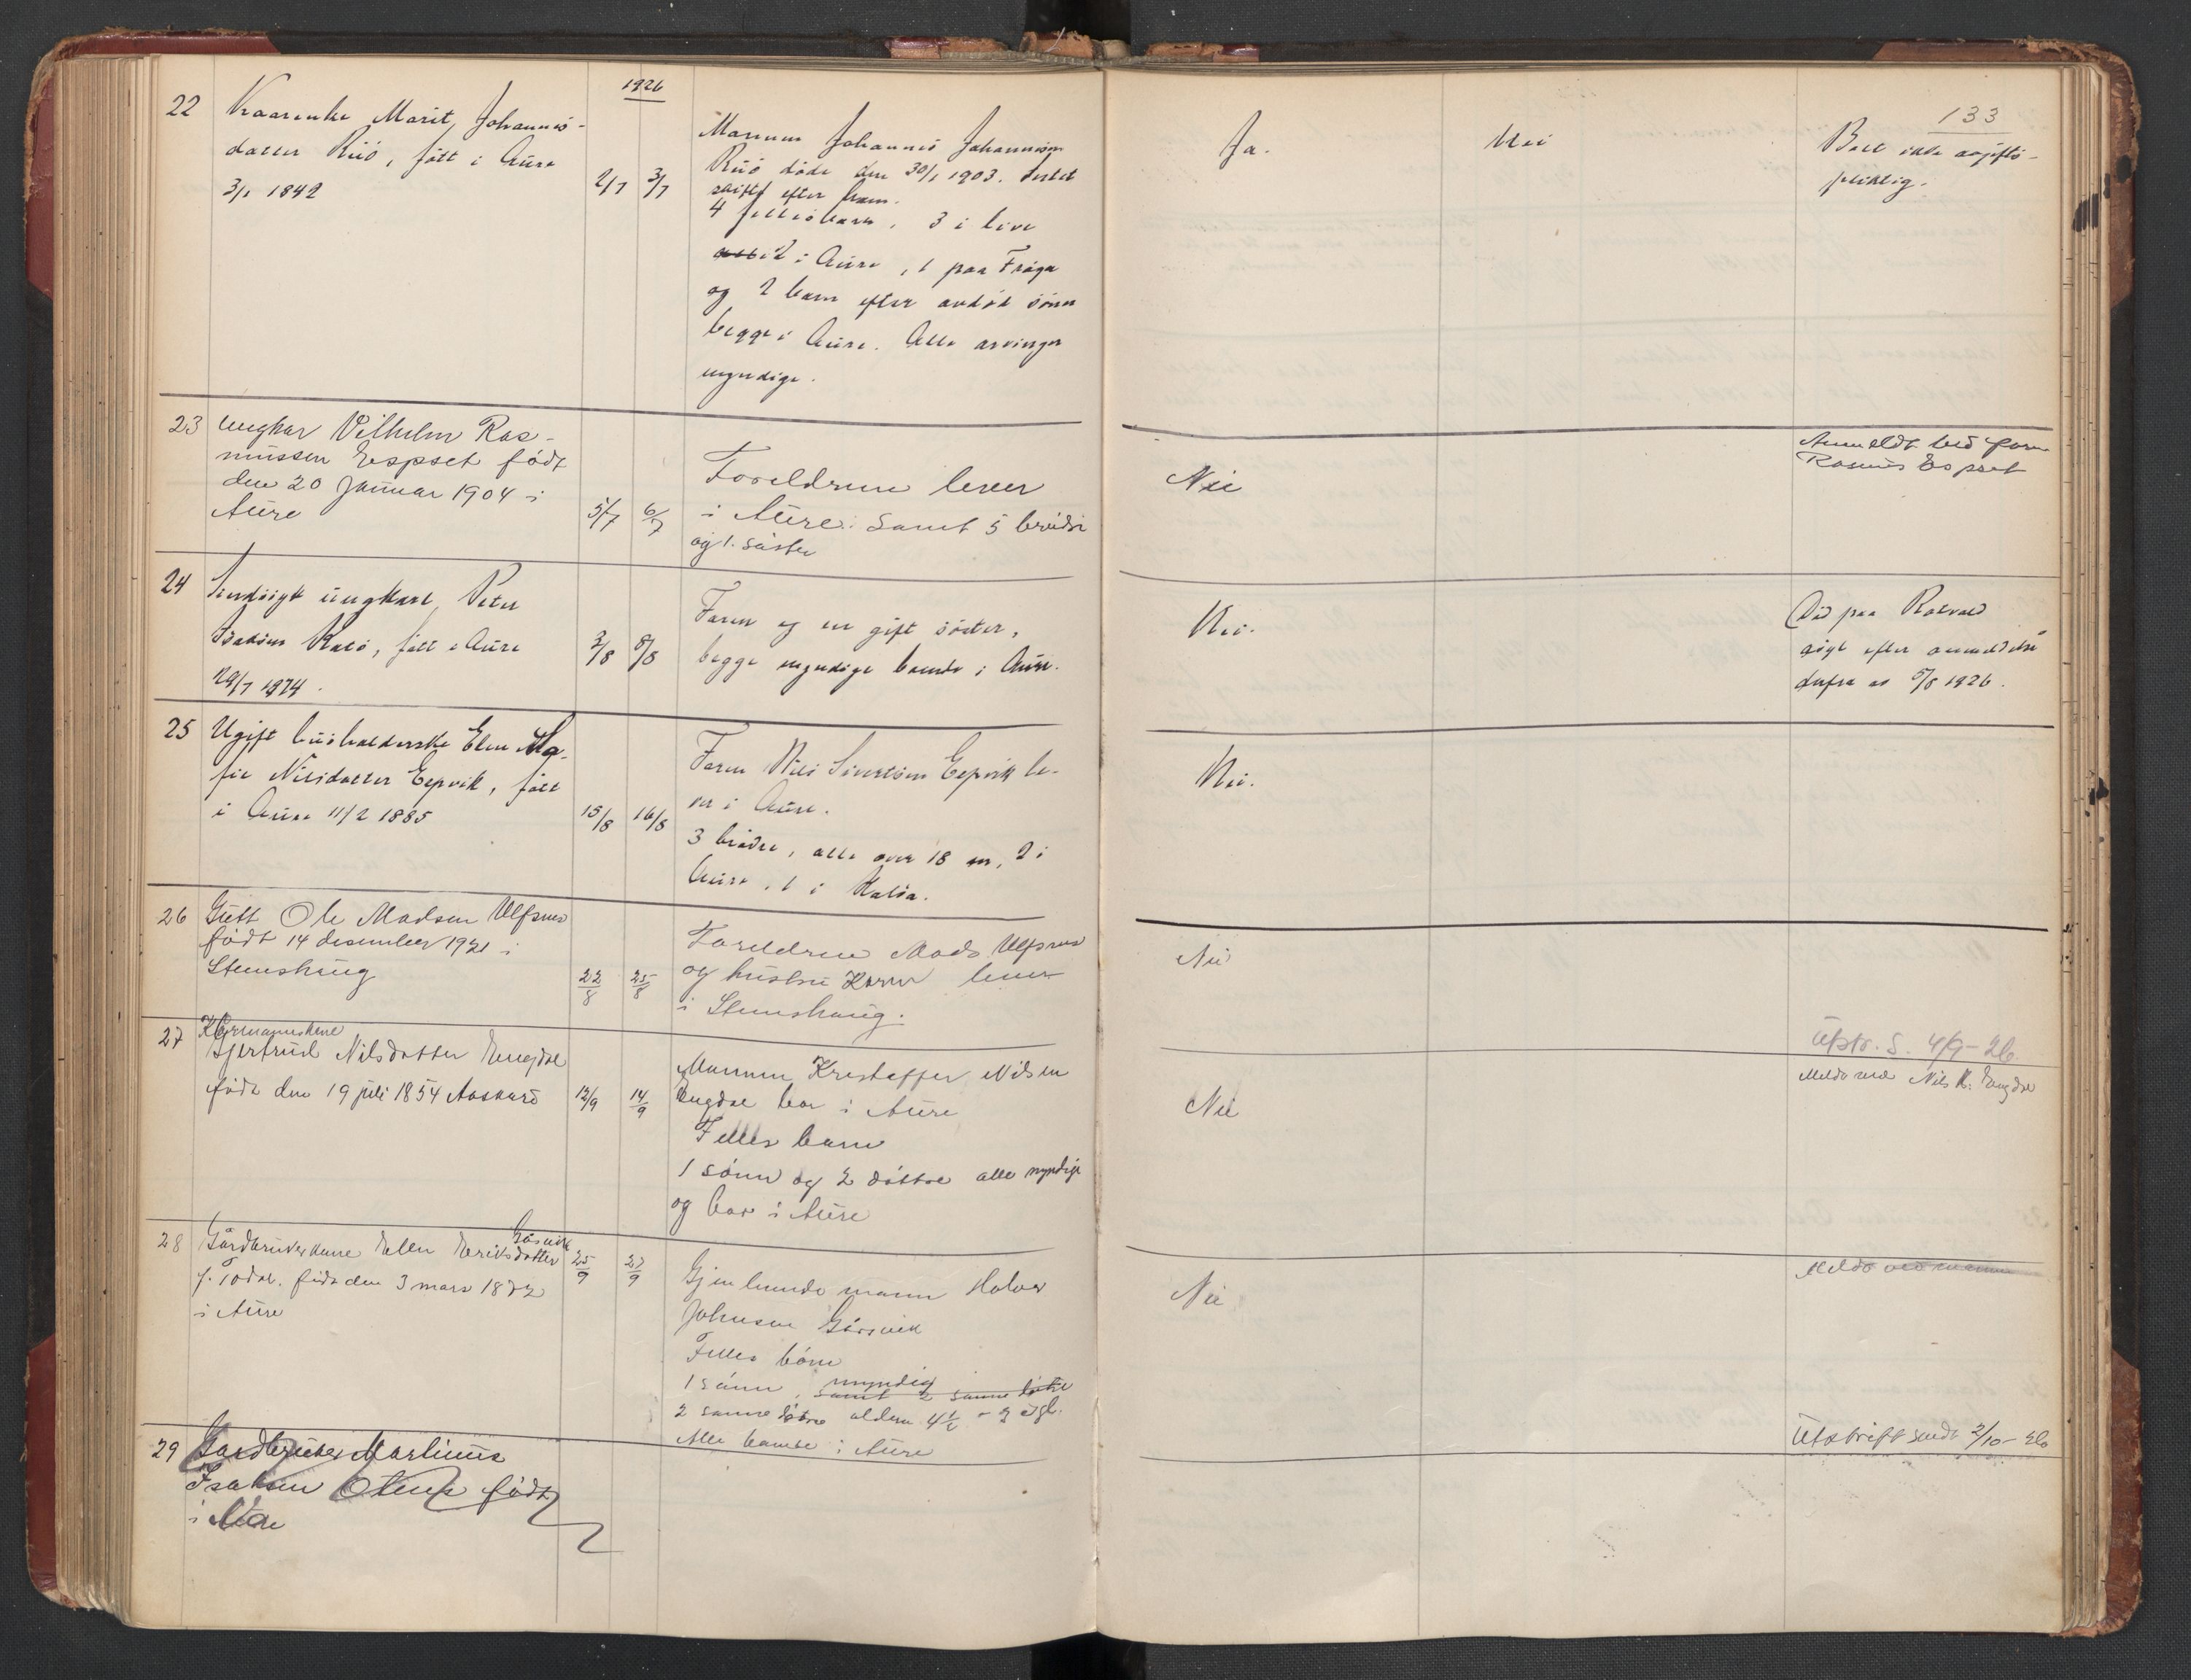 1926
133
22
Kaarenke Marit, Johannes-
datter Ruö, fött i Aure
3/1 1842
2/7 3/7
Mannen Johannes Johannesen
Ruö döde den 30/1 1903. Intet
skifte efter ham.
4 fellesbarn, 3 i live
2 i Aure, 1 paa Fröya
og 2 barn efter avdöd sönn
begge i Aure. Alle arvinger
myndige.
Ja.
Nei
Boet ikke avgifts-
pliktig.
23
Ungkar Vilhelm Ras-
mussen Espset födt
den 20 Januar 1904 i
Aure
5/7 6/7
Foreldrene lever
i Aure. Samt 5 brödre
og 1. söster
Nei
Anmeldt ved faren
Rasmus Espset
24
Sindssyk ungkarl Peter
Isaksen Kalö, fött i Aure
29/7 1974.
2/8 8/8
Faren og en gift söster,
begge myndige boende i Aure.
Nei.
Död paa Rotvold
asyl efter anmeldelse
derfra av 5/8 1926.
25
Ugift husholderske Elen Ma-
fie Nilsdatter Espvik, fött
i Aure 11/2 1885
15/8 16/8
Faren Nils Sivertsen Espvik le-
ver i Aure.
3 brödre, alle over 18 aar, 2 i
Aure, 1 i Halsa.
Nei.
26
Gutt Ole Madsen Ulfsnes
födt 14 desember 1921 i
Stemshaug
22/8 25/8
Foreldrene Mads Ulfsnes
og hustru Karen lever
i Stemshaug.
Nei
Utstr. S. 4/9-26.
27
Kårmannskone
Gjertrud Nilsdatter Engdal
födt den 19 juli 1854 Aasskard
12/9 14/9
Mannen Krestoffer Nilsen
Engdal bor i Aure
Felles barn
1 sönn og 2 döttre alle myndige
og bor i Aure
Nei
Meldt ved Nils K. Engdal
28
Gårdbrukerkone Elen Eriksdatter Gåsvik
f. Todal. födt den 3 mars 1872
i Aure
25/9 27/9
Gjenlevende mann Halvor
Johnsen Gåsvik
Felles börn
1 sönn, myndig
samt 2 sanne döttre
2 sanne döttre alderen 4½ - 2 årgl.
Alle boende i Aure
Nei
Meldt ved mannen
Utskrift sendt 2/10-26
29
Gardbruker Martinus
Isaksen Otnes födt
i Aure